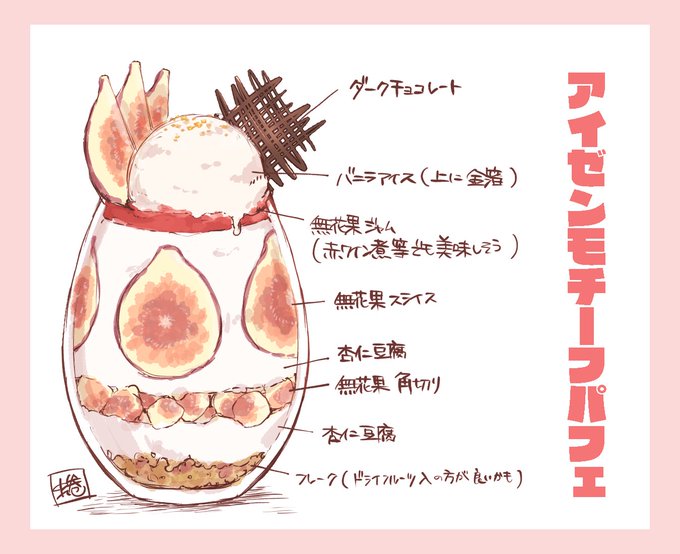 アイゼンモチーフパフェ
ダークチョコレート
バニラアイス(上に金箔)
無花果ジャム
(赤ワイン煮等でも美味しそう)
無花果スライス
杏仁豆腐
無花果 角切り
杏仁豆腐
フレーク(ドライフルーツ入の方が良いかも)